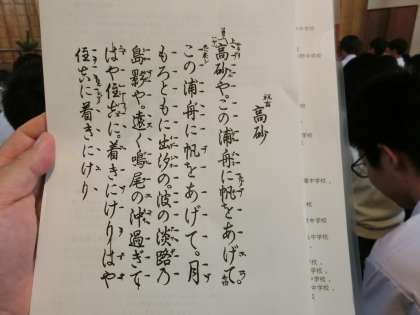 高砂
高砂や。この浦舟に帆をあげて。
この浦舟に帆をあげて。月
もろともに出汐の。波の淡路乃
島影や。遠く鳴尾の沖過ぎて
はや住吉に。着きにけりはや
住吉に着きにけり
中学校
中学校
中学校